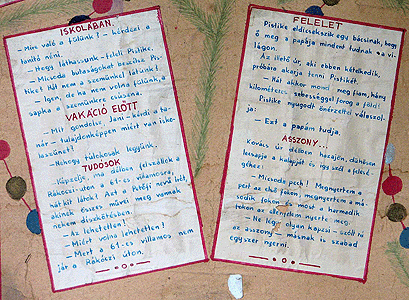 ISKOLÁBAN.
- Mire való a fülünk? - kérdezi a
tanító néni.
- Hogy láthassunk - feleli Pistike.
- Micsoda butaságokat beszélsz Pis-
tike! Hát nem a szemünkkel látunk?
- Igen, de ha nem volna fülünk, a
sapka a szemünkre csúszna.
VAKÁCIÓ ELŐTT
- Mit gondolsz, Jani - kérdi a ta-
nár - tulajdonképpen miért van isko-
laszünet?
- Nehogy túlokosak legyünk.
TUDÓSOK
- Képzelje, ma délben felszállok a
Rákóczi-úton a 61-es villamosra,
hát kit látok? Azt a Petőfi nevű írót,
akinek összes művei meg vannak
nekem díszkötésben.
- Az lehetetlen!
- Miért volna lehetetlen?
- Mert a 61-es villamos nem
jár a Rákóczi úton.
FELELET
Pistike eldicsekszik egy bácsinak, hogy
ő meg a papája mindent tudnak a vi-
lágon.
Az illető úr, aki ebben kételkedik,
próbára akarja tenni Pistikét.
- Hát akkor mondd meg fiam, hány
kilométeres sebességgel forog a föld?
Pistike nyugodt önérzettel válaszol-
ja:
- Ezt a papám tudja.
ASSZONY...
Kovács úr délben hazajön, dühösen
lecsapja a kalapját és így szól a felesé-
géhez:
- Micsoda pech! Megnyertem a
pert az első fokon, megnyertem a má-
sodik fokon és most a harmadik
fokon az ellenfelem nyerte meg.
- Ne légy olyan kapzsi - szólt rá
az asszony - másnak is szabad
egyszer nyerni.